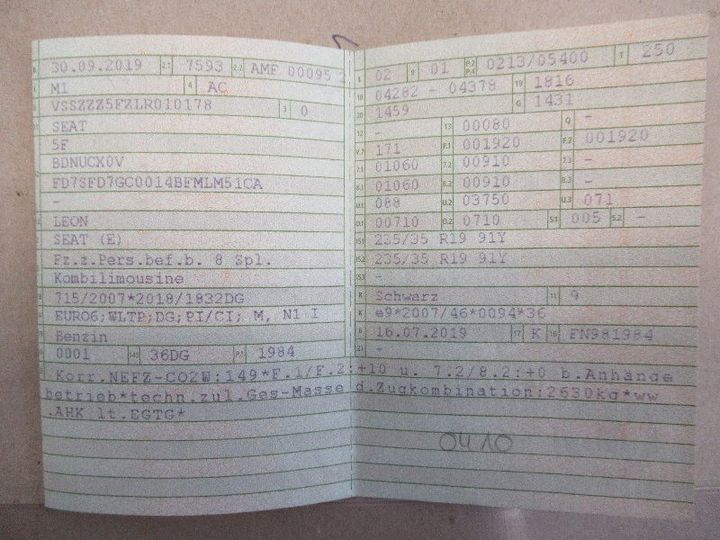 B 30.09.2019 2.1 7593 2.2 AMF 00095 2
M1 4 AC
VSSZZZ5FZLR010178 3 0
SEAT
5F
BDNUCX0V
FD7SFD7GC0014BFMLM51CA
-
LEON
SEAT (E)
Fz.z.Pers.bef.b. 8 Spl.
Kombilimousine
715/2007*2018/1832DG
EURO6;WLTP;DG;PI/CI; M, N1 I
Benzin
0001 36DG P.1 1984
L 02 9 01 P.2 P.4 0213/05400 T 250
18 04282 - 04378 19 1816
20 1459 G 1431
12 - 13 00080 Q -
V.7 171 F.1 001920 F.2 001920
7.1 01060 7.2 00910 7.3 -
8.1 01060 8.2 00910 8.3 -
U.1 088 U.2 03750 U.3 071
O.1 00710 O.2 0710 S.1 005 S.2 -
235/35 R19 91Y
235/35 R19 91Y
-
R Schwarz 11 9
K e9*2007/46*0094*36
6 16.07.2019 17 K 16 FN981984
21 -
Korr.NEFZ-CO2W:149*F.1/F.2:+10 u. 7.2/8.2:+0 b.Anhänge
betrieb*techn.zul.Ges-Masse d.Zugkombination:2630kg*ww
.AHK lt.EGTG*
0410